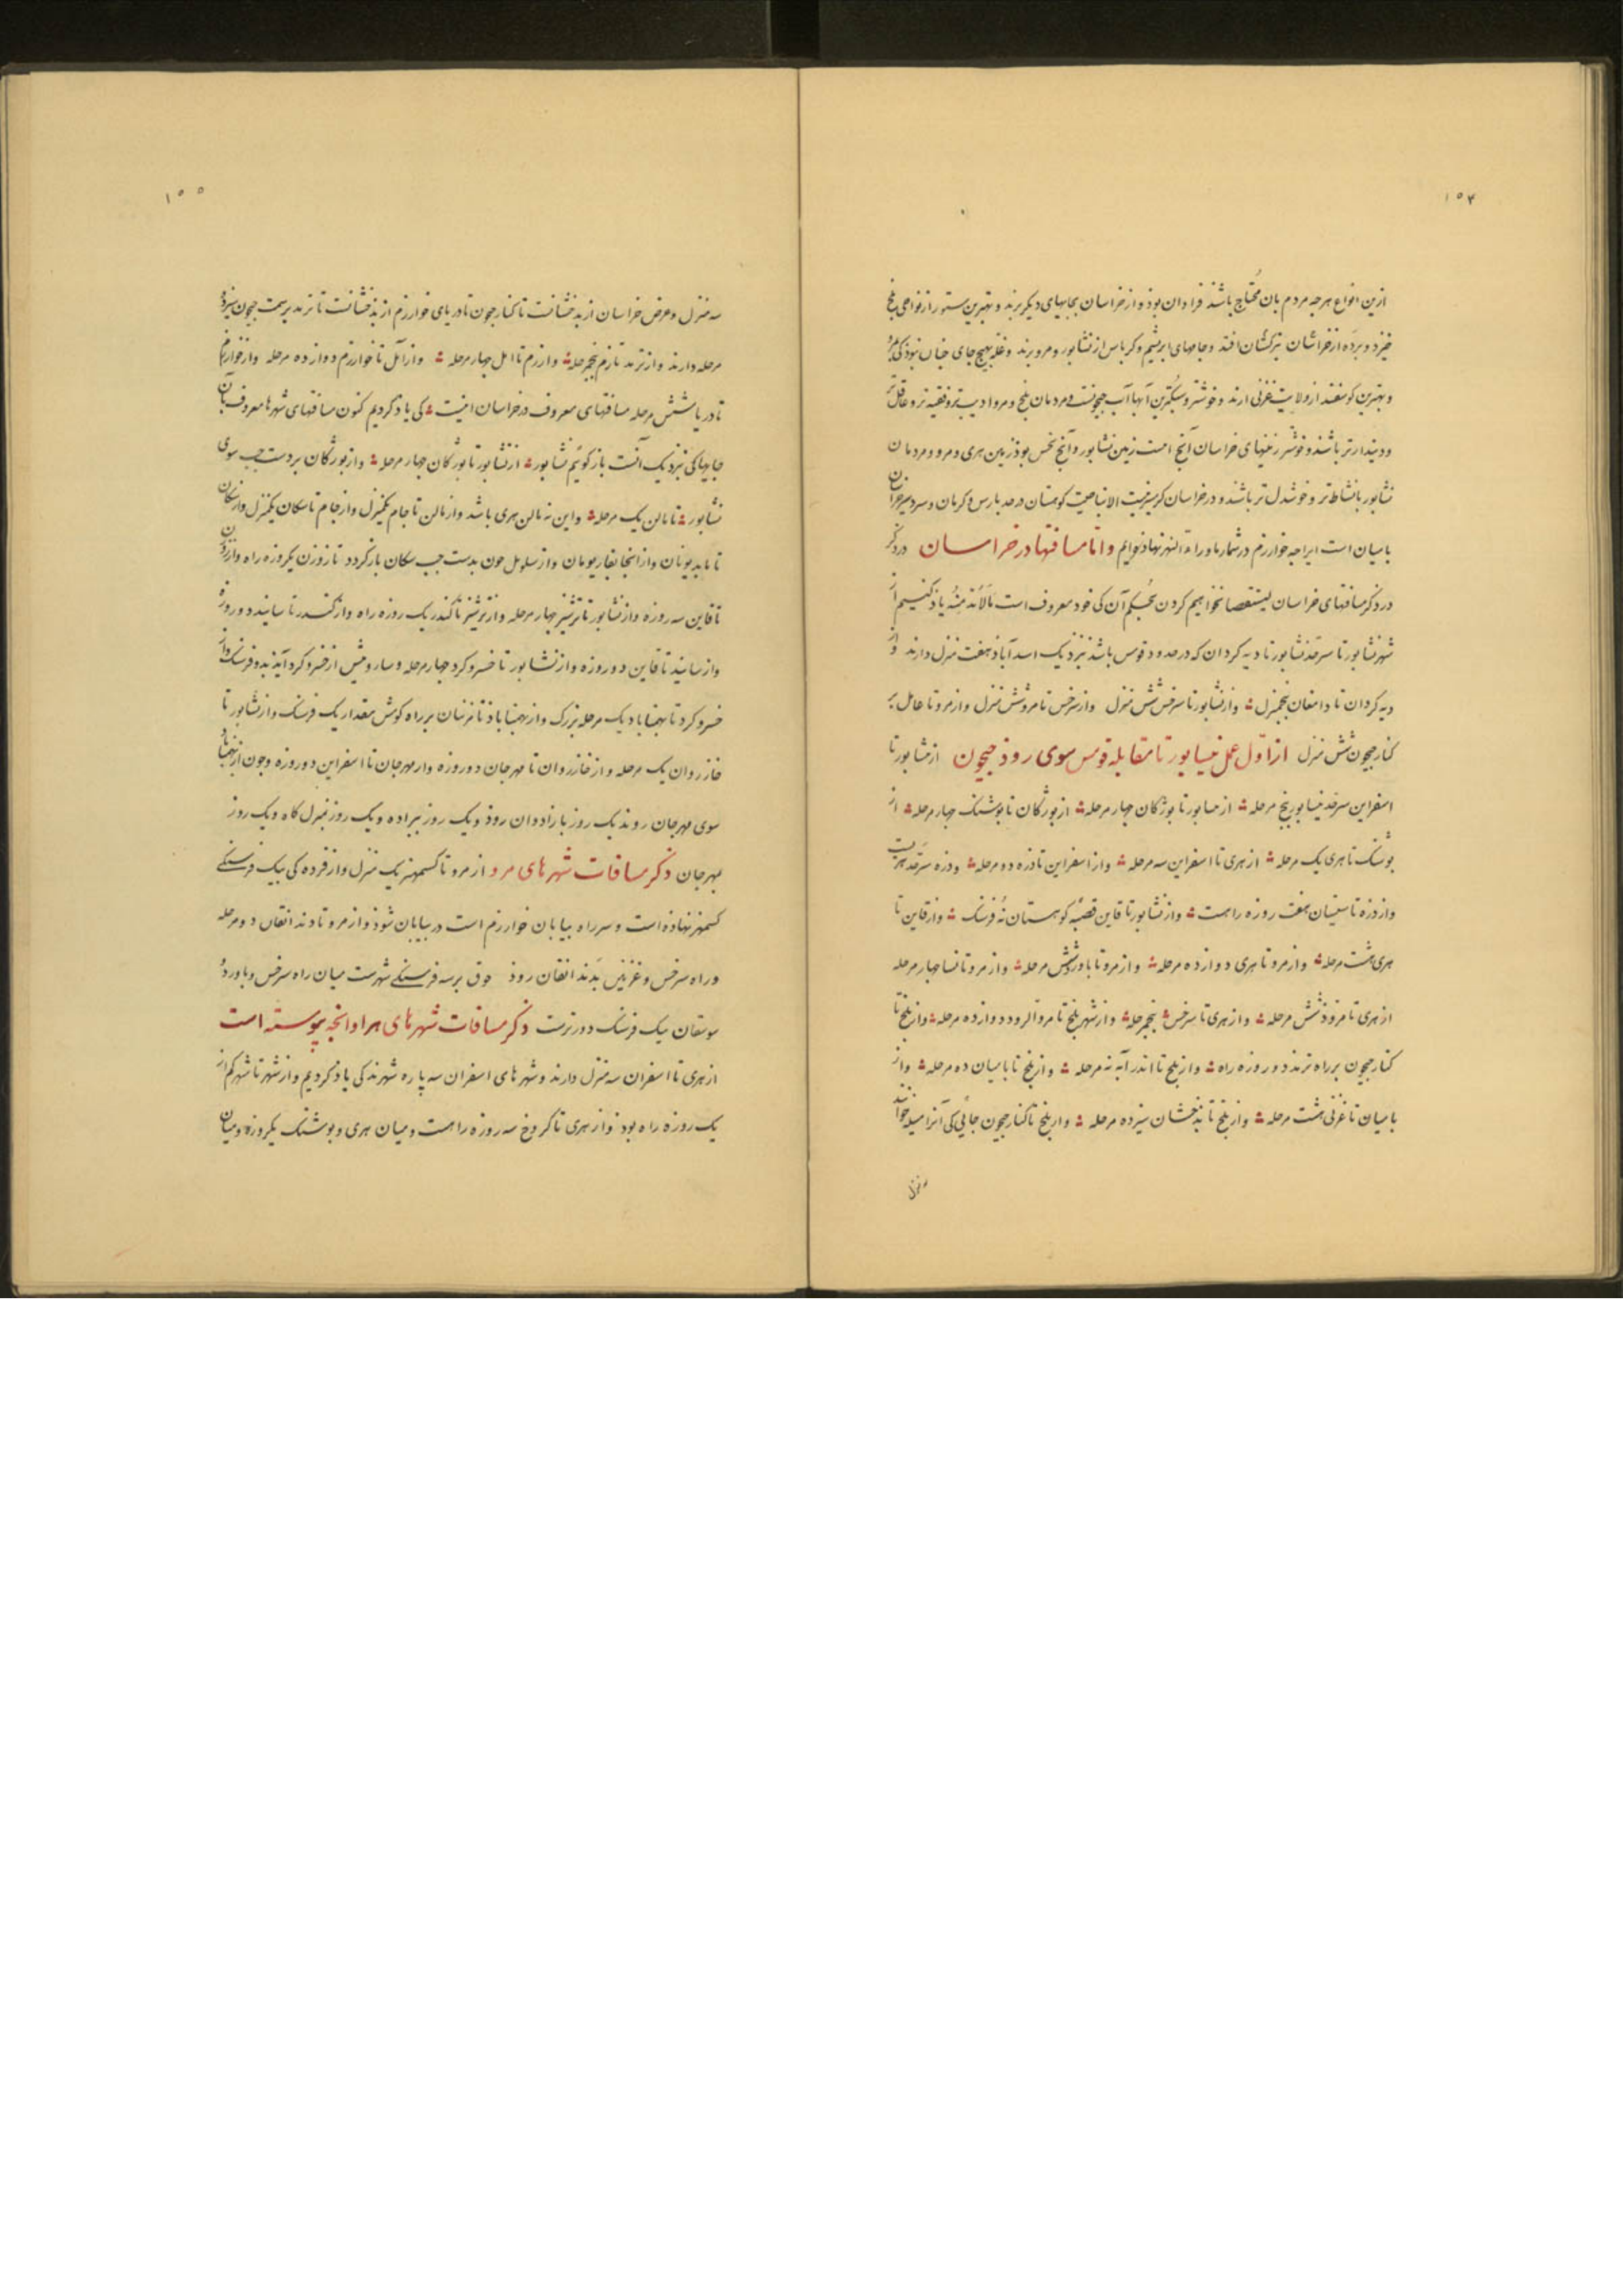 ۱۵۴
ازین انواع هرچه مردم بان محتاج باشند فراوان بود و از خراسان بجایهای دیکر برند و بهترین ستور از نواحی بلخ
خیزد و برده از خراسان ترکستان افتد و جامهای ابریشم و کرباس از نشابور و مرو برند و غله بهیچ جای چنان نبوذ کی بمرو
و بهترین کوسفند از ولایت غزنی ارند و خوشتر و سبکترین آبها آب جیحونست و مردمان بلخ و مرو ادیب تر و فقیه تر و عاقل تر
و دیندارتر باشند و خوشتر زمینهای خراسان آنچ است زمین نشابور و آنچ نخس بوذ زمین هری و مرو و مردمان
نشابور بانشاط تر و خوشدل تر باشند و در خراسان کرمسیر نیست الا بناحیت کوهستان در حد پارس و کرمان و سردسیر خراسان
بامیان است ایراچه خوارزم در شمار ماوراء النهر نهاذه ایم و اما مسافتها در خراسان در ذکر
در ذکر مسافتهای خراسان استقصا نخواهیم کردن بحکم آن کی خود معروف است مالابد منه یاذ کنیم از
شهر نشابور تا سرحد نشابور تا دیه کردان که در حدود قومس باشذ نزدیک اسدآباذ هفت منزل دارند و از
دیه کردان تا دامغان پنجمنزل و از نشابور تا سرخس شش منزل و از سرخس تا مرو شش منزل و از مرو تا عامل بر
کنار جیحون شش منزل از اول عمل نیسابور تا مقابله قومس سوی رود جیحون از نشابور تا
اسفراین سرحد نیسابور پنج مرحله از نسابور تا بوژکان چهار مرحله از بوژکان تا بوشنک چهار مرحله از
بوشنک تا هری یک مرحله از هری تا اسفراین سه مرحله و از اسفراین تا دره دو مرحله و دره سرحد هریست
و از دره تا سیستان هفت روزه راهست و از نشابور تا قاین قصبه کوهستان نه فرسنک و از قاین تا
هری هشت مرحله و از مرو تا هری دوازده مرحله و از مرو تا باورد شش مرحله و از مرو تا نسا چهار مرحله
از هری تا مروذ شش مرحله و از هری تا سرخس پنجمرحله و از شهر بلخ تا مروالرود دوازده مرحله و از بلخ تا
کنار جیحون بر راه ترمذ دو روزه راه و از بلخ تا اندرآبه نه مرحله و از بلخ تا بامیان ده مرحله و از
بامیان تا غزنی هشت مرحله و از بلخ تا بذخشان سیزده مرحله و از بلخ تا کنار جیحون جائی کی آنرا میله خوانند
سه منزل
۱۵۵
سه منزل و عرض خراسان از بذخشانست تا کنار جیحون تا دریای خوارزم از بذخشانست تا ترمذ بر سمت جیحون سیزده
مرحله دارند و از ترمذ تا زم پنجمرحله و از زم تا امل چهار مرحله و از آمل تا خوارزم دوازده مرحله و از خوارزم
تا دریا شش مرحله مسافتهای معروف در خراسان اینست کی یاذ کردیم کنون مسافتهای شهرها معروف بآن
جایها کی نزدیک آنست باز کوئیم نشابور از نشابور تا بوژکان چهار مرحله و از بوژکان بر دست چپ سوی
نشابور تا مالن یک مرحله و این نه مالن هری باشد و از مالن تا جام یکمنزل و از جام تا سنکان یکمنزل و از سنکان
تا زوزن یکروزه راه و از زوزن
تا قاین سه روزه و از نشابور تا ترشیز چهار مرحله و از ترشیز تا کندر یک روزه راه و از کندر تا سانید دو روزه
و از سانید تا قاین دو روزه و از نشابور تا خسروکرد چهار مرحله و سار و پیش از خسروکرد آیذ بدو فرسنک و از
خسروکرد تا بهمناباد یک مرحله بزرک و از بهمناباذ تا مزنان بر راه کومش مقدار یک فرسنک و از نشابور تا
خازروان یک مرحله و از خازروان تا مهرجان دو روزه و از مهرجان تا اسفراین دو روزه و چون از بهمناباد
سوی مهرجان روند یک روز بازادوان روذ و یک روز بیراده و یک روز بمنزل کاه و یک روز
مهرجان ذکر مسافات شهرهای مرو از مرو تا کشمیهن یک منزل و از فرده کی بیک فرسنکی
کشمیهن نهاذه است و سر راه بیابان خوارزم است در بیابان شوذ و از مرو تا دندانقان دو مرحله
و راه سرخس و غزنین بدندانقان روذ برسه فرسنکی شهرست میان راه سرخس و باورد و
سوسقان یک فرسنک دورترست ذکر مسافات شهرهای هرا و انچه پیوسته است
از هری تا اسفزان سه منزل دارند و شهرهای اسفزان سه پاره شهرند کی یاذ کردیم و از شهر تا شهر کم از
یک روزه راه بوذ و از هری تا کروخ سه روزه راهست و میان هری و بوشنک یکروزه و میان